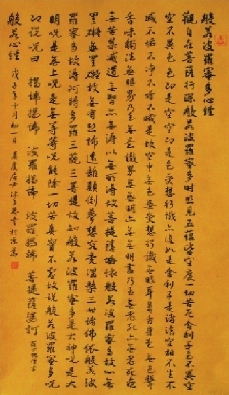 般若波羅蜜多心經
觀自在菩薩行深般若波羅蜜多時照見五蘊皆空度一切苦厄舍利子色不異空
空不異色色即是空空即是色受想行識亦復如是舍利子是諸法空相不生不
滅不垢不淨不增不減是故空中無色無受想行識無眼耳鼻舌身意無色聲
香味觸法無眼界乃至無意識界無無明亦無無明盡乃至無老死亦無老死盡
無苦集滅道無智亦無得以無所得故菩提薩埵依般若波羅蜜多故心無
罣礙無罣礙故無有恐怖遠離顛倒夢想究竟涅槃三世諸佛依般若波
羅蜜多故得阿耨多羅三藐三菩提故知般若波羅蜜多是大神咒是大
明咒是無上咒是無等等咒能除一切苦真實不虛故說般若波羅蜜多咒
即說咒曰 揭諦揭諦 波羅揭諦 波羅僧揭諦 菩提薩婆訶
般若心經 戊子年十月初一日